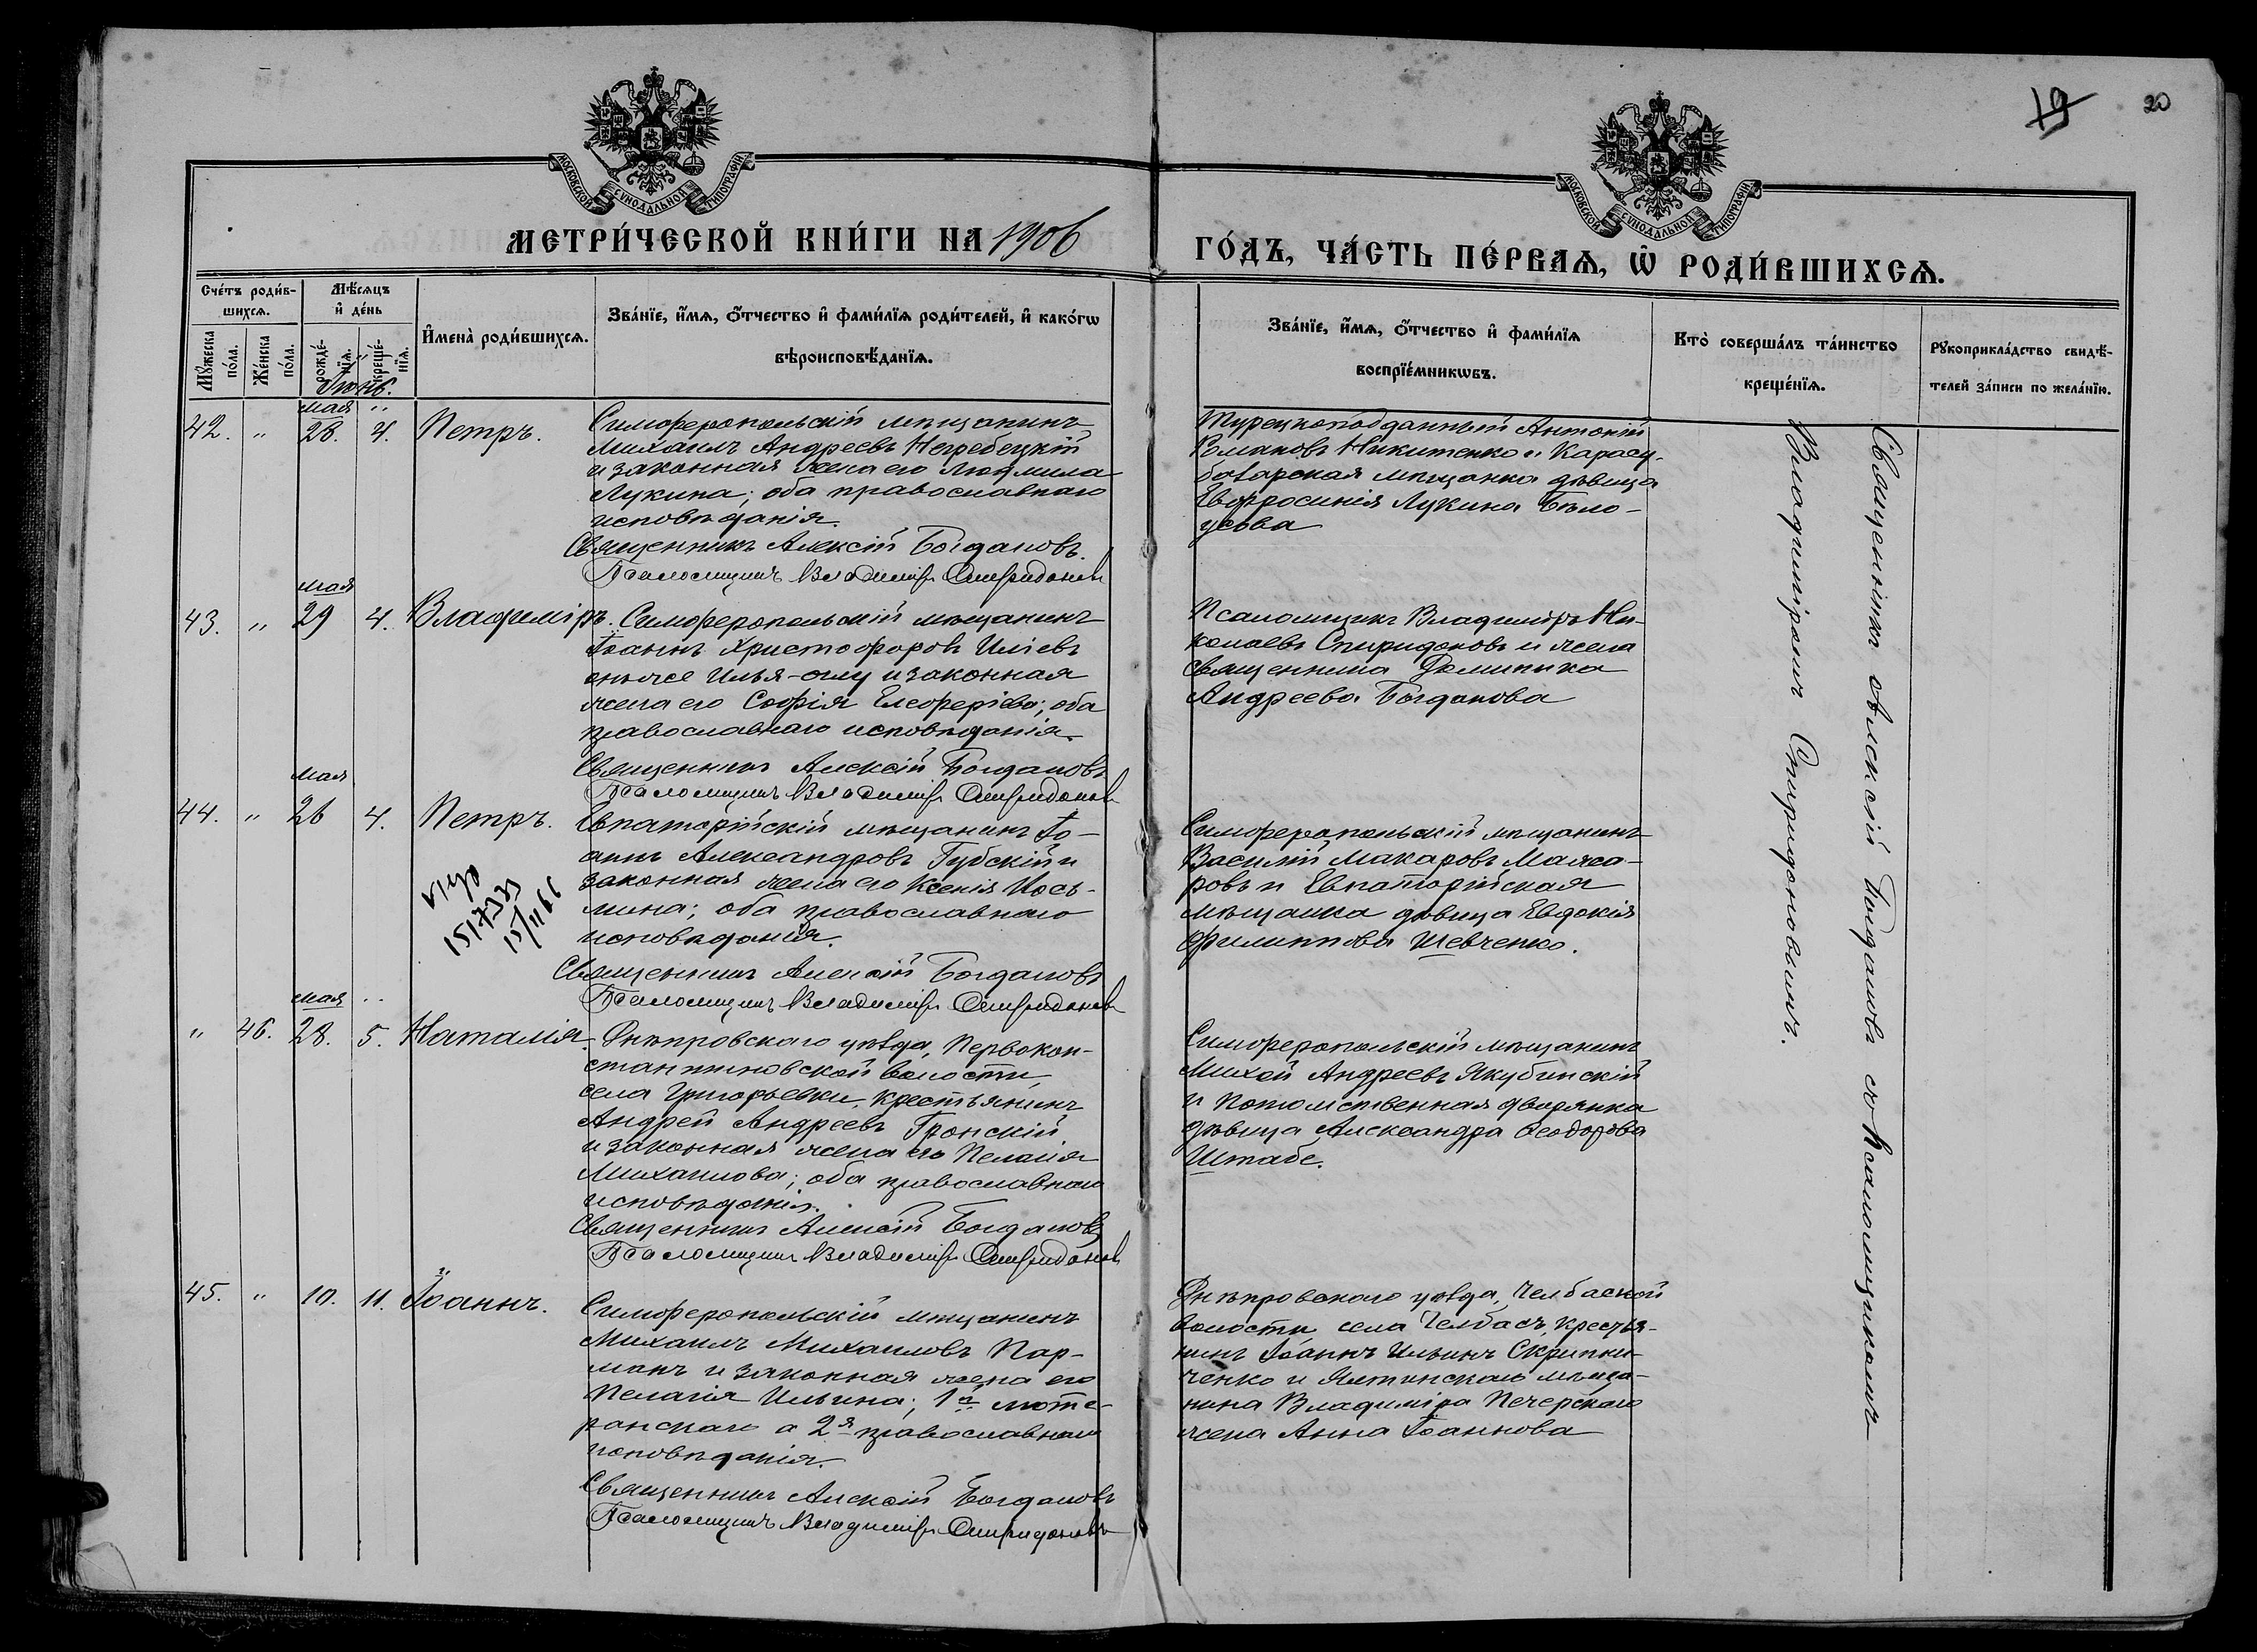 19 20
МОСКОВСКОЙ СѴНОДАЛЬНОЙ ТИПОГРАФІИ
МОСКОВСКОЙ СѴНОДАЛЬНОЙ ТИПОГРАФІИ
МЕТРИ́ЧЕСКОЙ КНИ́ГИ НА 1906
ГО́ДЪ, ЧА́СТЬ ПЕ́РВАѦ, Ѡ҆ РОДИ́ВШИХСѦ.
Сче́тъ роди́в-
шихсѧ.
Мꙋ́жеска по́ла.
Же́нска по́ла.
Мѣ́сѧцъ
и҆ де́нь
рожде́-нїѧ.
креще́-нїѧ.
И҆мена̀ роди́вшихсѧ.
Зва́нїе, и҆́мѧ, ѻ҆́тчество и҆ фами́лїѧ роди́телей, и҆ како́гѡ
вѣроисповѣ́данїѧ.
Зва́нїе, и҆́мѧ, ѻ҆́тчество и҆ фами́лїѧ
воспрїе́мникѡвъ.
Кто̀ соверша́лъ та́инство
креще́нїѧ.
Рꙋкоприкла́дство свидѣ́-
телей за́писи по жела́нїю.
Іюнь.
мая "
42. " 28. 4. Петръ.
Симферопольскій мѣщанинъ
Михаилъ Андреевъ Негребецкій
и законная жена его Людмила
Лукина; оба православнаго
исповѣданія.
Священникъ Алексій Богдановъ.
Псаломщикъ Владиміръ Спиридоновъ
Турецкоподданный Антоній
Романовъ Никитенко и Карасу-
базарская мѣщанка дѣвица
Евфросинія Лукина Бѣло-
усова
мая
43. " 29 4. Владиміръ.
Симферопольскій мѣщанинъ
Іоаннъ Христофоровъ Иліевъ
онъ же Илья-оглу и законная
жена его Софія Елеоферіева; оба
православнаго исповѣданія.
Священникъ Алексій Богдановъ
Псаломщикъ Владиміръ Спиридоновъ
Псаломщикъ Владиміръ Ни-
колаевъ Спиридоновъ и жена
священника Доминика
Андреева Богданова
мая
44. " 26 4. Петръ.
Евпаторійскій мѣщанинъ Іо-
аннъ Александровъ Губскій и
законная жена его Ксенія Кось-
мина; оба православнаго
исповѣданія.
Священникъ Алексій Богдановъ
Псаломщикъ Владиміръ Спиридоновъ
15/1166
Симферопольскій мѣщанинъ
Василій Макаровъ Мажа-
ровъ и Евпаторійская
мѣщанка дѣвица Евдокія
Филиппова Шевченко.
мая "
" 46. 28. 5. Наталія.
Днѣпровскаго уѣзда, Первокон-
стантиновской волости,
села Григорьевки, крестьянинъ
Андрей Андреевъ Гронскій
и законная жена его Пелагія
Михаилова; оба православнаго
исповѣданія.
Священникъ Алексій Богдановъ
Псаломщикъ Владиміръ Спиридоновъ
Симферопольскій мѣщанинъ
Михей Андреевъ Якубинскій
и потомственная дворянка
дѣвица Александра Ѳеодорова
Штабе.
45. " 10. 11. Іоаннъ.
Симферопольскій мѣщанинъ
Михаилъ Михаиловъ Пар-
манъ и законная жена его
Пелагія Ильина; 1й люте-
ранскаго а 2я православнаго
исповѣданія.
Священникъ Алексій Богдановъ
Псаломщикъ Владиміръ Спиридоновъ
Днѣпровскаго уѣзда, Челбаской
волости села Челбасъ, крестья-
нинъ Іоаннъ Ильинъ Скрипни-
ченко и Ялтинскаго мѣща-
нина Владиміра Печерскаго
жена Анна Іоаннова
Священникъ Алексій Богдановъ съ псаломщикомъ
Владиміромъ Спиридоновымъ.